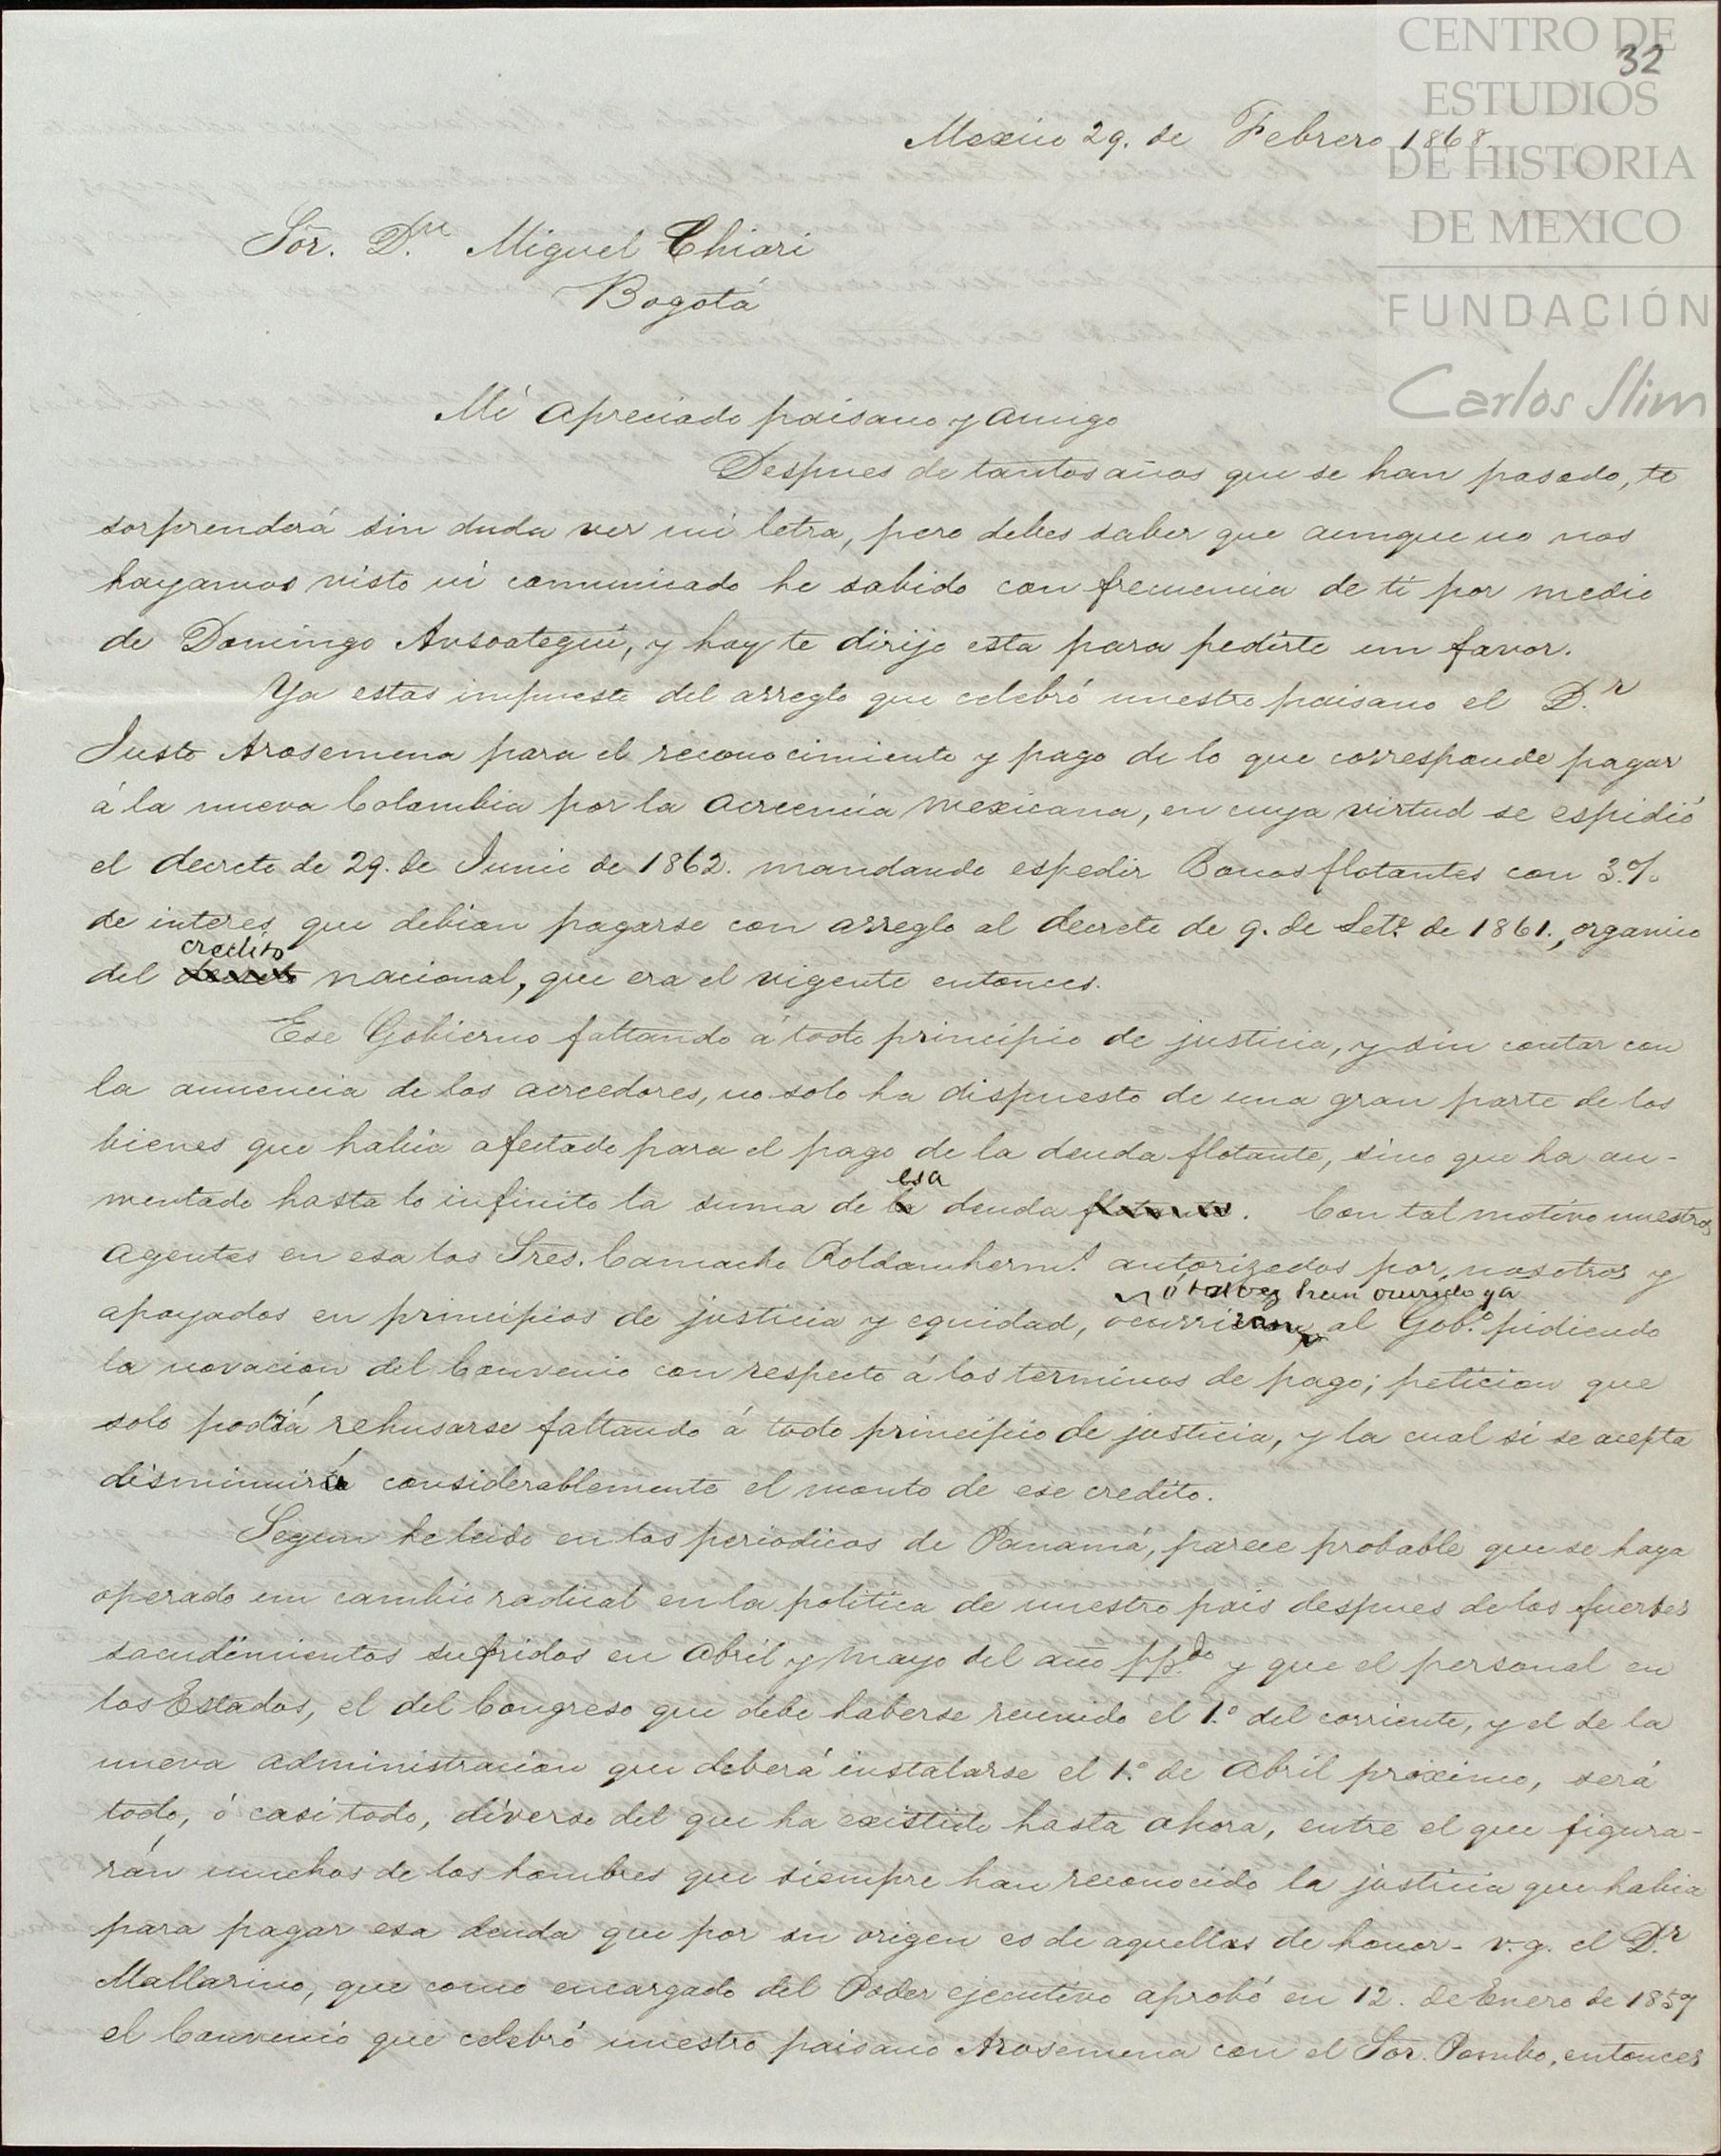 CENTRO DE
ESTUDIOS
DE HISTORIA
DE MEXICO
FUNDACIÓN
Carlos Slim
32
Mexico 29. de Febrero 1868
Sor. Dn Miguel Chiari
Bogotá
Mi apreciado paisano y amigo
Despues de tantos años que se han pasado, te
sorprenderá sin duda ver mi letra, pero debes saber que aunque no nos
hayamos visto ni comunicado he sabido con frecuencia de ti por medio
de Domingo Ansoategui, y hoy te dirijo esta para pedirte un favor.
Ya estas impuesto del arreglo que celebró nuestro paisano el D.r
Justo Arosemena para el reconocimiento y pago de lo que corresponde pagar
á la nueva Colombia por la acreencia mexicana, en cuya virtud se espidió
el decreto de 29. de Junio de 1862. mandando espedir Bonos flotantes con 3.%
de interes que debian pagarse con arreglo al decreto de 9. de Set.e de 1861., organico
credito
del decreto nacional, que era el vigente entonces.
Ese Gobierno faltando á todo principio de justicia, y sin contar con
la anuencia de los acreedores, no solo ha dispuesto de una gran parte de los
bienes que habia afectado para el pago de la deuda flotante, sino que ha au-
esa
mentado hasta lo infinito la suma de la deuda flotante. Con tal motivo nuestros
agentes en esa los Sres. Camacho Roldan herm.s autorizados por nosotros y
ó tal vez han ocurrido ya
apoyados en principios de justicia y equidad, al Gob.o pidiendo
la novacion del Convenio con respecto á los terminos de pago; peticion que
solo podrá rehusarse faltando á todo principio de justicia, y la cual si se acepta
disminuirá considerablemente el monto de ese credito.
Segun he leido en los periodicos de Panamá, parece probable que se haya
operado un cambio radical en la politica de nuestro pais despues de los fuertes
sacudimientos sufridos en Abril y Mayo del año pp.do y que el personal en
los Estados, el del Congreso que debe haberse reunido el 1.o del corriente, y el de la
nueva administracion que deberá instalarse el 1.o de Abril proximo, será
todo, ó casi todo, diverso del que ha existido hasta ahora, entre el que figura-
rán muchos de los hombres que siempre han reconocido la justicia que habia
para pagar esa deuda que por su origen es de aquellas de honor - v.g. el D.r
Mallarino, que como encargado del Poder ejecutivo aprobó en 12. de Enero de 1857
el Convenio que celebró nuestro paisano Arosemena con el Sor. Pombo, entonces